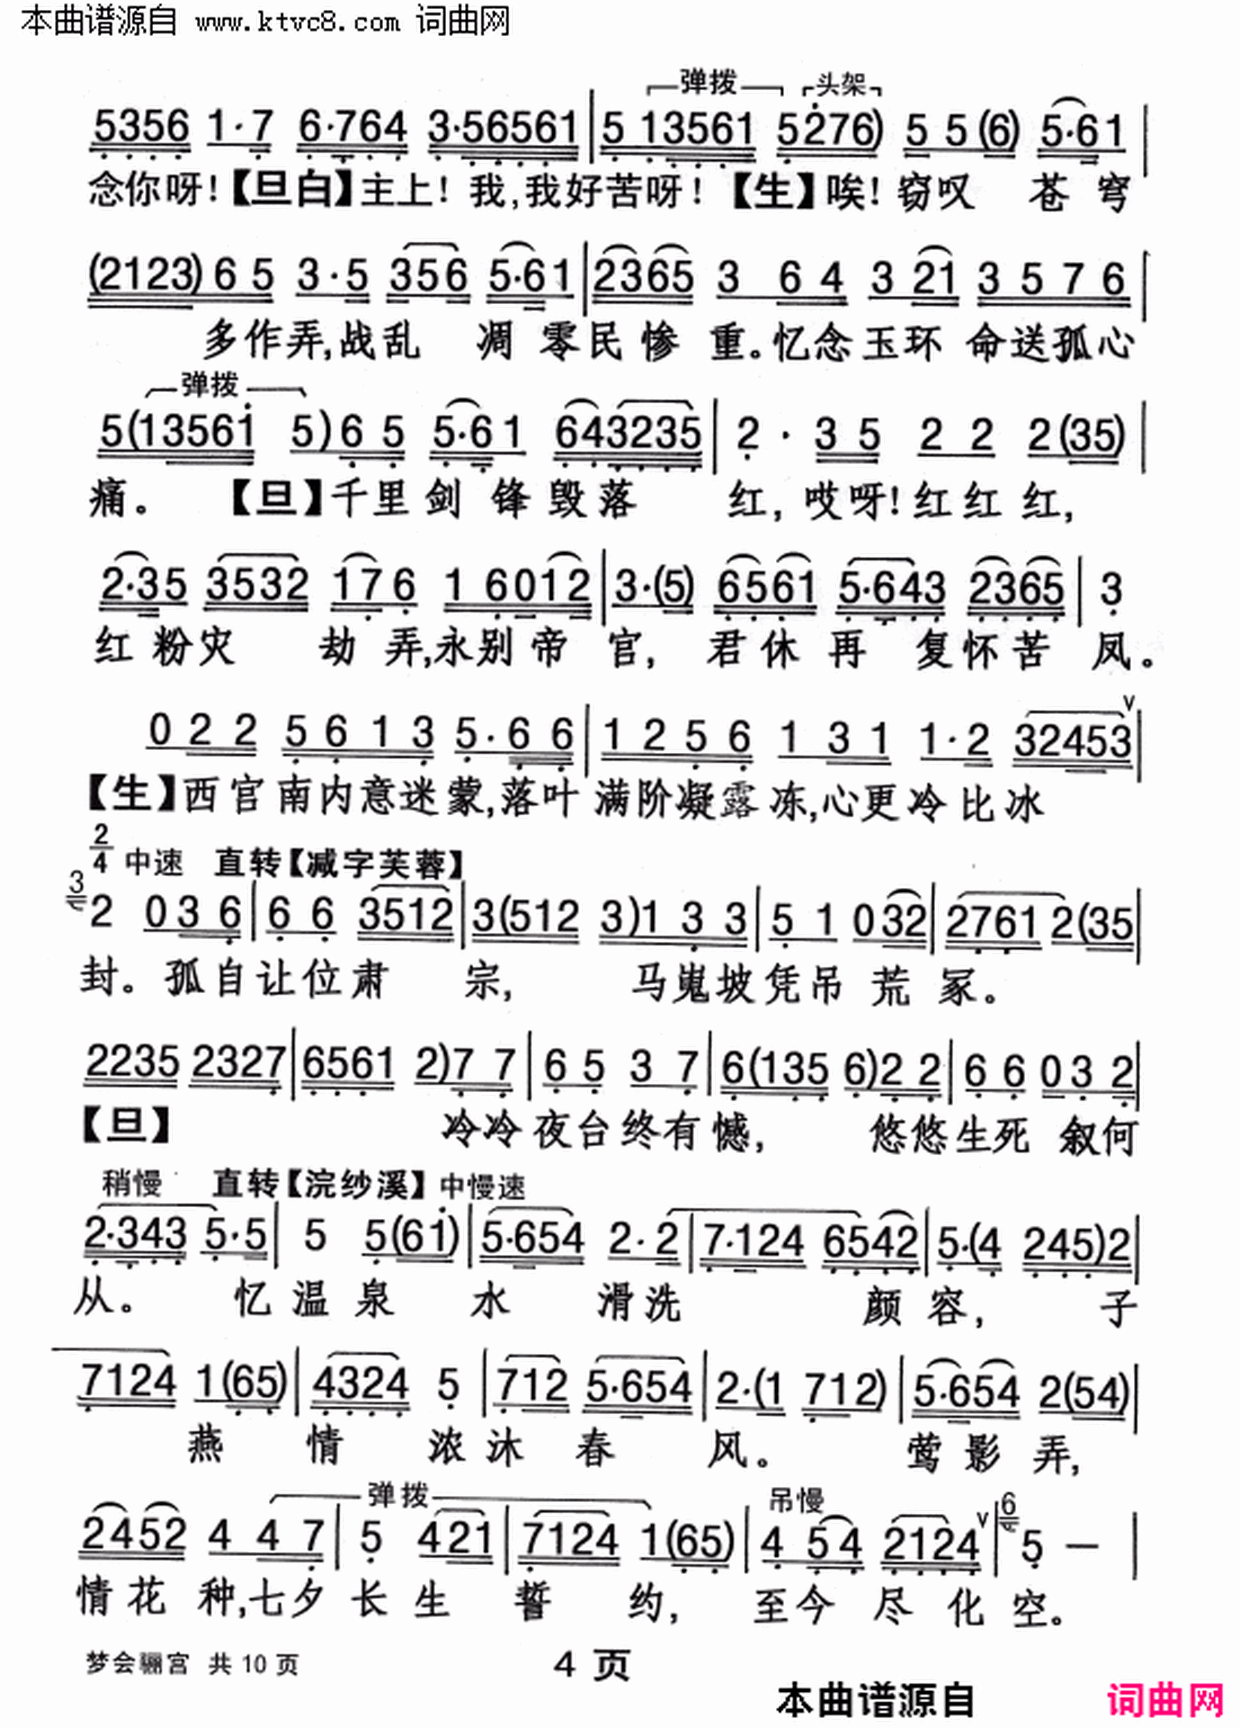 本曲谱源自 www.ktvc8.com 词曲网
弹拨 头架
5356 1·7 6·764 3·56561 | 5 13561 5276) 5 5 (6) 5·61 |
念你呀!【旦白】主上! 我,我好苦呀!【生】唉! 窃叹 苍 穹
(2123) 6 5 3·5 356 5·61 | 2365 3 6 4 3 21 3 5 7 6 |
多作弄,战乱 凋 零民 惨 重。忆念玉环 命送孤心
弹拨
5(13561 5) 6 5 5·61 643235 | 2 · 3 5 2 2 2(35) |
痛。【旦】千里剑 锋 毁 落 红, 哎呀! 红 红 红,
2·35 3532 176 1 6012 | 3·(5) 6561 5·643 2365 | 3
红 粉灾 劫 弄,永别帝 宫, 君 休 再 复怀苦 凤。
0 2 2 5 6 1 3 5·6 6 | 1 2 5 6 1 31 1·2 32453 |
【生】西宫南内意迷蒙,落叶满阶凝露冻,心更冷比冰
2/4 中速 直转【减字芙蓉】
3 2 0 3 6 | 6 6 3512 | 3(512 3)1 3 3 | 5 1 0 32 | 2761 2(35 |
封。孤自让位肃 宗, 马嵬坡凭吊荒 冢。
2235 2327 | 6561 2)7 7 | 6 5 3 7 | 6(135 6)2 2 | 6 6 0 3 2 |
【旦】 冷冷夜台终有憾, 悠悠生死 叙何
稍慢 直转【浣纱溪】中慢速
2·343 5·5 | 5 5(61) | 5·654 2·2 | 7·124 6542 | 5·(4 245)2 |
从。 忆 温 泉 水 滑洗 颜 容, 子
7124 1(65) | 4324 5 | 712 5·654 | 2·(1 712) | 5·654 2(54) |
燕 情 浓 沐 春 风。 莺 影 弄,
弹拨 吊慢
2452 4 4 7 | 5 421 | 7124 1(65) | 4 54 2124 | 6 5 — |
情花 种,七夕 长 生 誓 约, 至今 尽 化 空。
梦会骊宫 共10页
4 页
本曲谱源自 词曲网